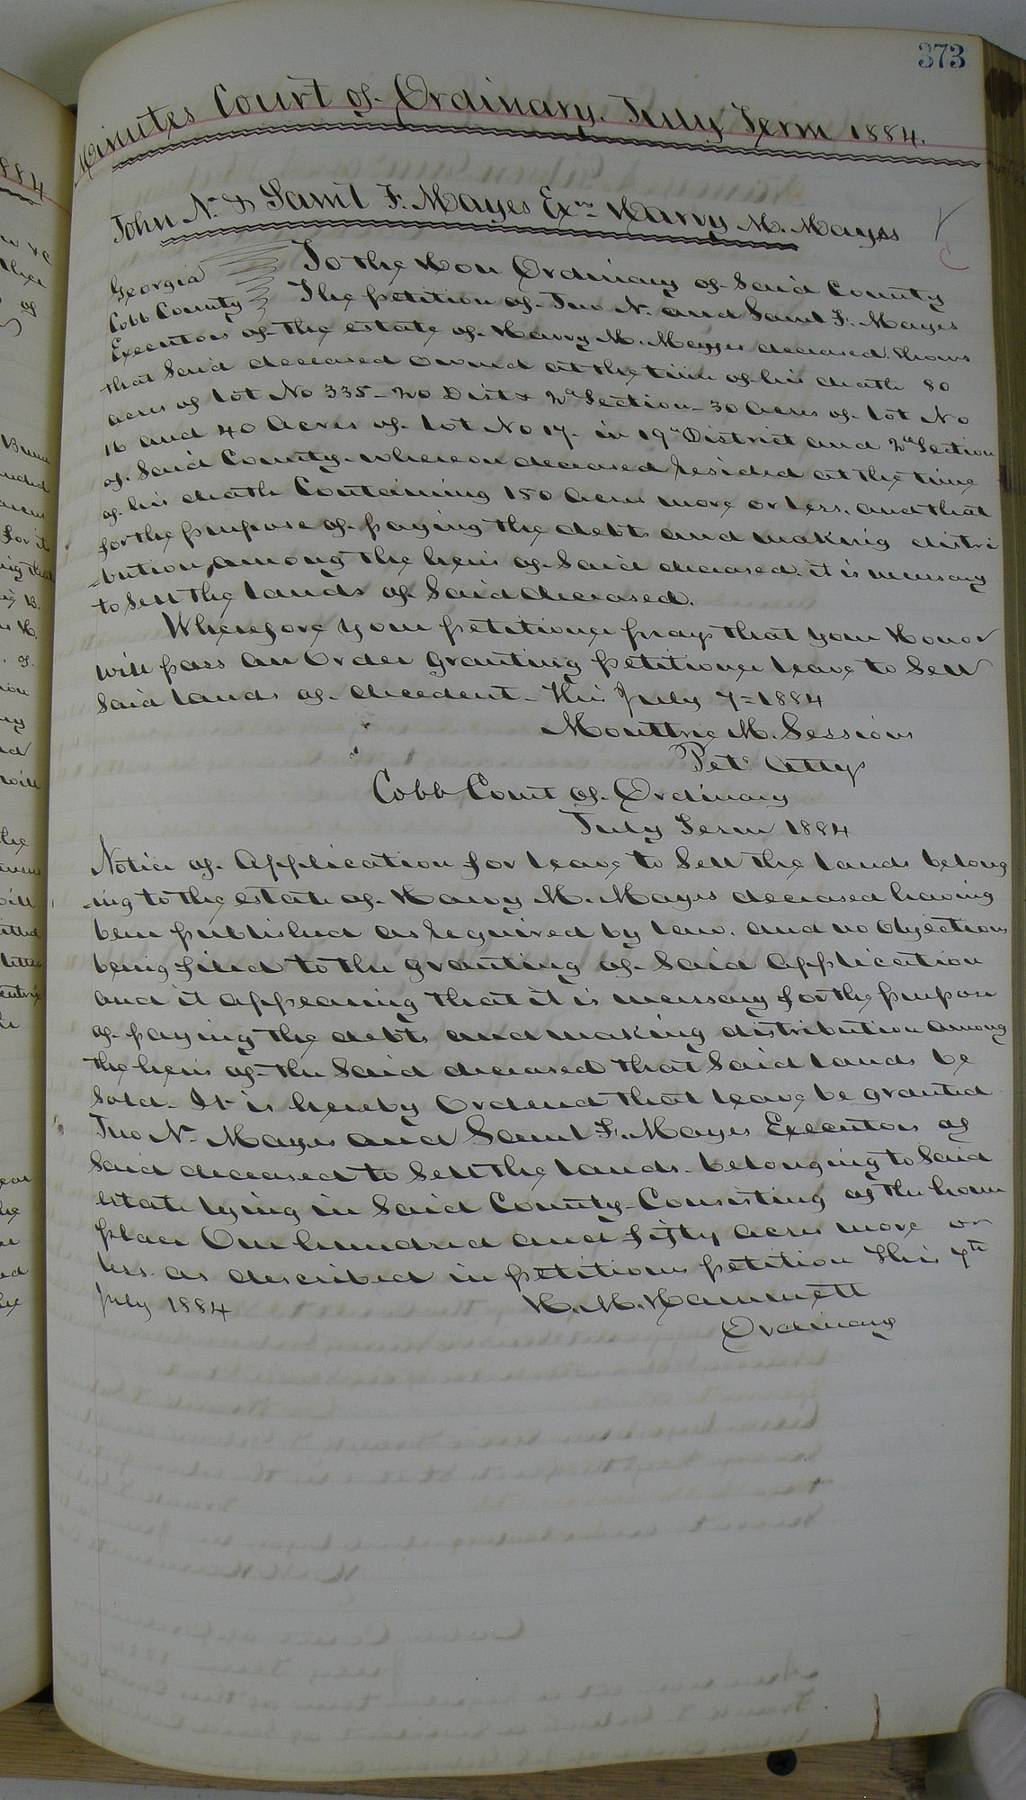 373
Minutes Court of Ordinary. July Term 1884.
John N. & Saml F. Mayes Exrs Harvy M. Mayes
Georgia
Cobb County
To the Hon Ordinary of Said County
The petition of Jno N. and Saml F. Mayes
Executors of the estate of Harvy M. Mayes deceased Shows
that Said deceased owned at the time of his death 80
acres of lot No 335 - 20 Dist & 2d Section - 30 acres of lot No
16 and 40 acres of lot No 17. in 19th District and 2d Section
of Said County. whereon deceased resided at the time
of his death Containing 150 acres more or less. and that
for the purpose of paying the debts and making distri
-bution among the heirs of Said deceased. it is necessary
to Sell the lands of Said deceased.
Wherefore your petitioner prays that your Honor
will pass an Order granting petitioner leave to Sell
Said lands of decedent. This July 7=1884
Moultrie M. Sessions
Pets Atty
Cobb Court of Ordinary
July Term 1884
Notice of Application for leave to Sell the lands belong
-ing to the estate of Harvy M. Mayes deceased having
been published as required by law. and no Objections
being filed to the granting of Said Application
and it appearing that it is necessary for the purpose
of paying the debts and making distribution among
the heirs of the Said deceased that Said lands be
Sold. It is hereby Ordered that leave be granted
Jno N. Mayes and Saml F. Mayes Executors of
Said deceased to Sell the lands. belonging to Said
estate lying in Said County - Consisting of the home
place One hundred and fifty acres more or
less. as described in petitioners petition This 7th
July 1884
H. M. Hammett
Ordinary